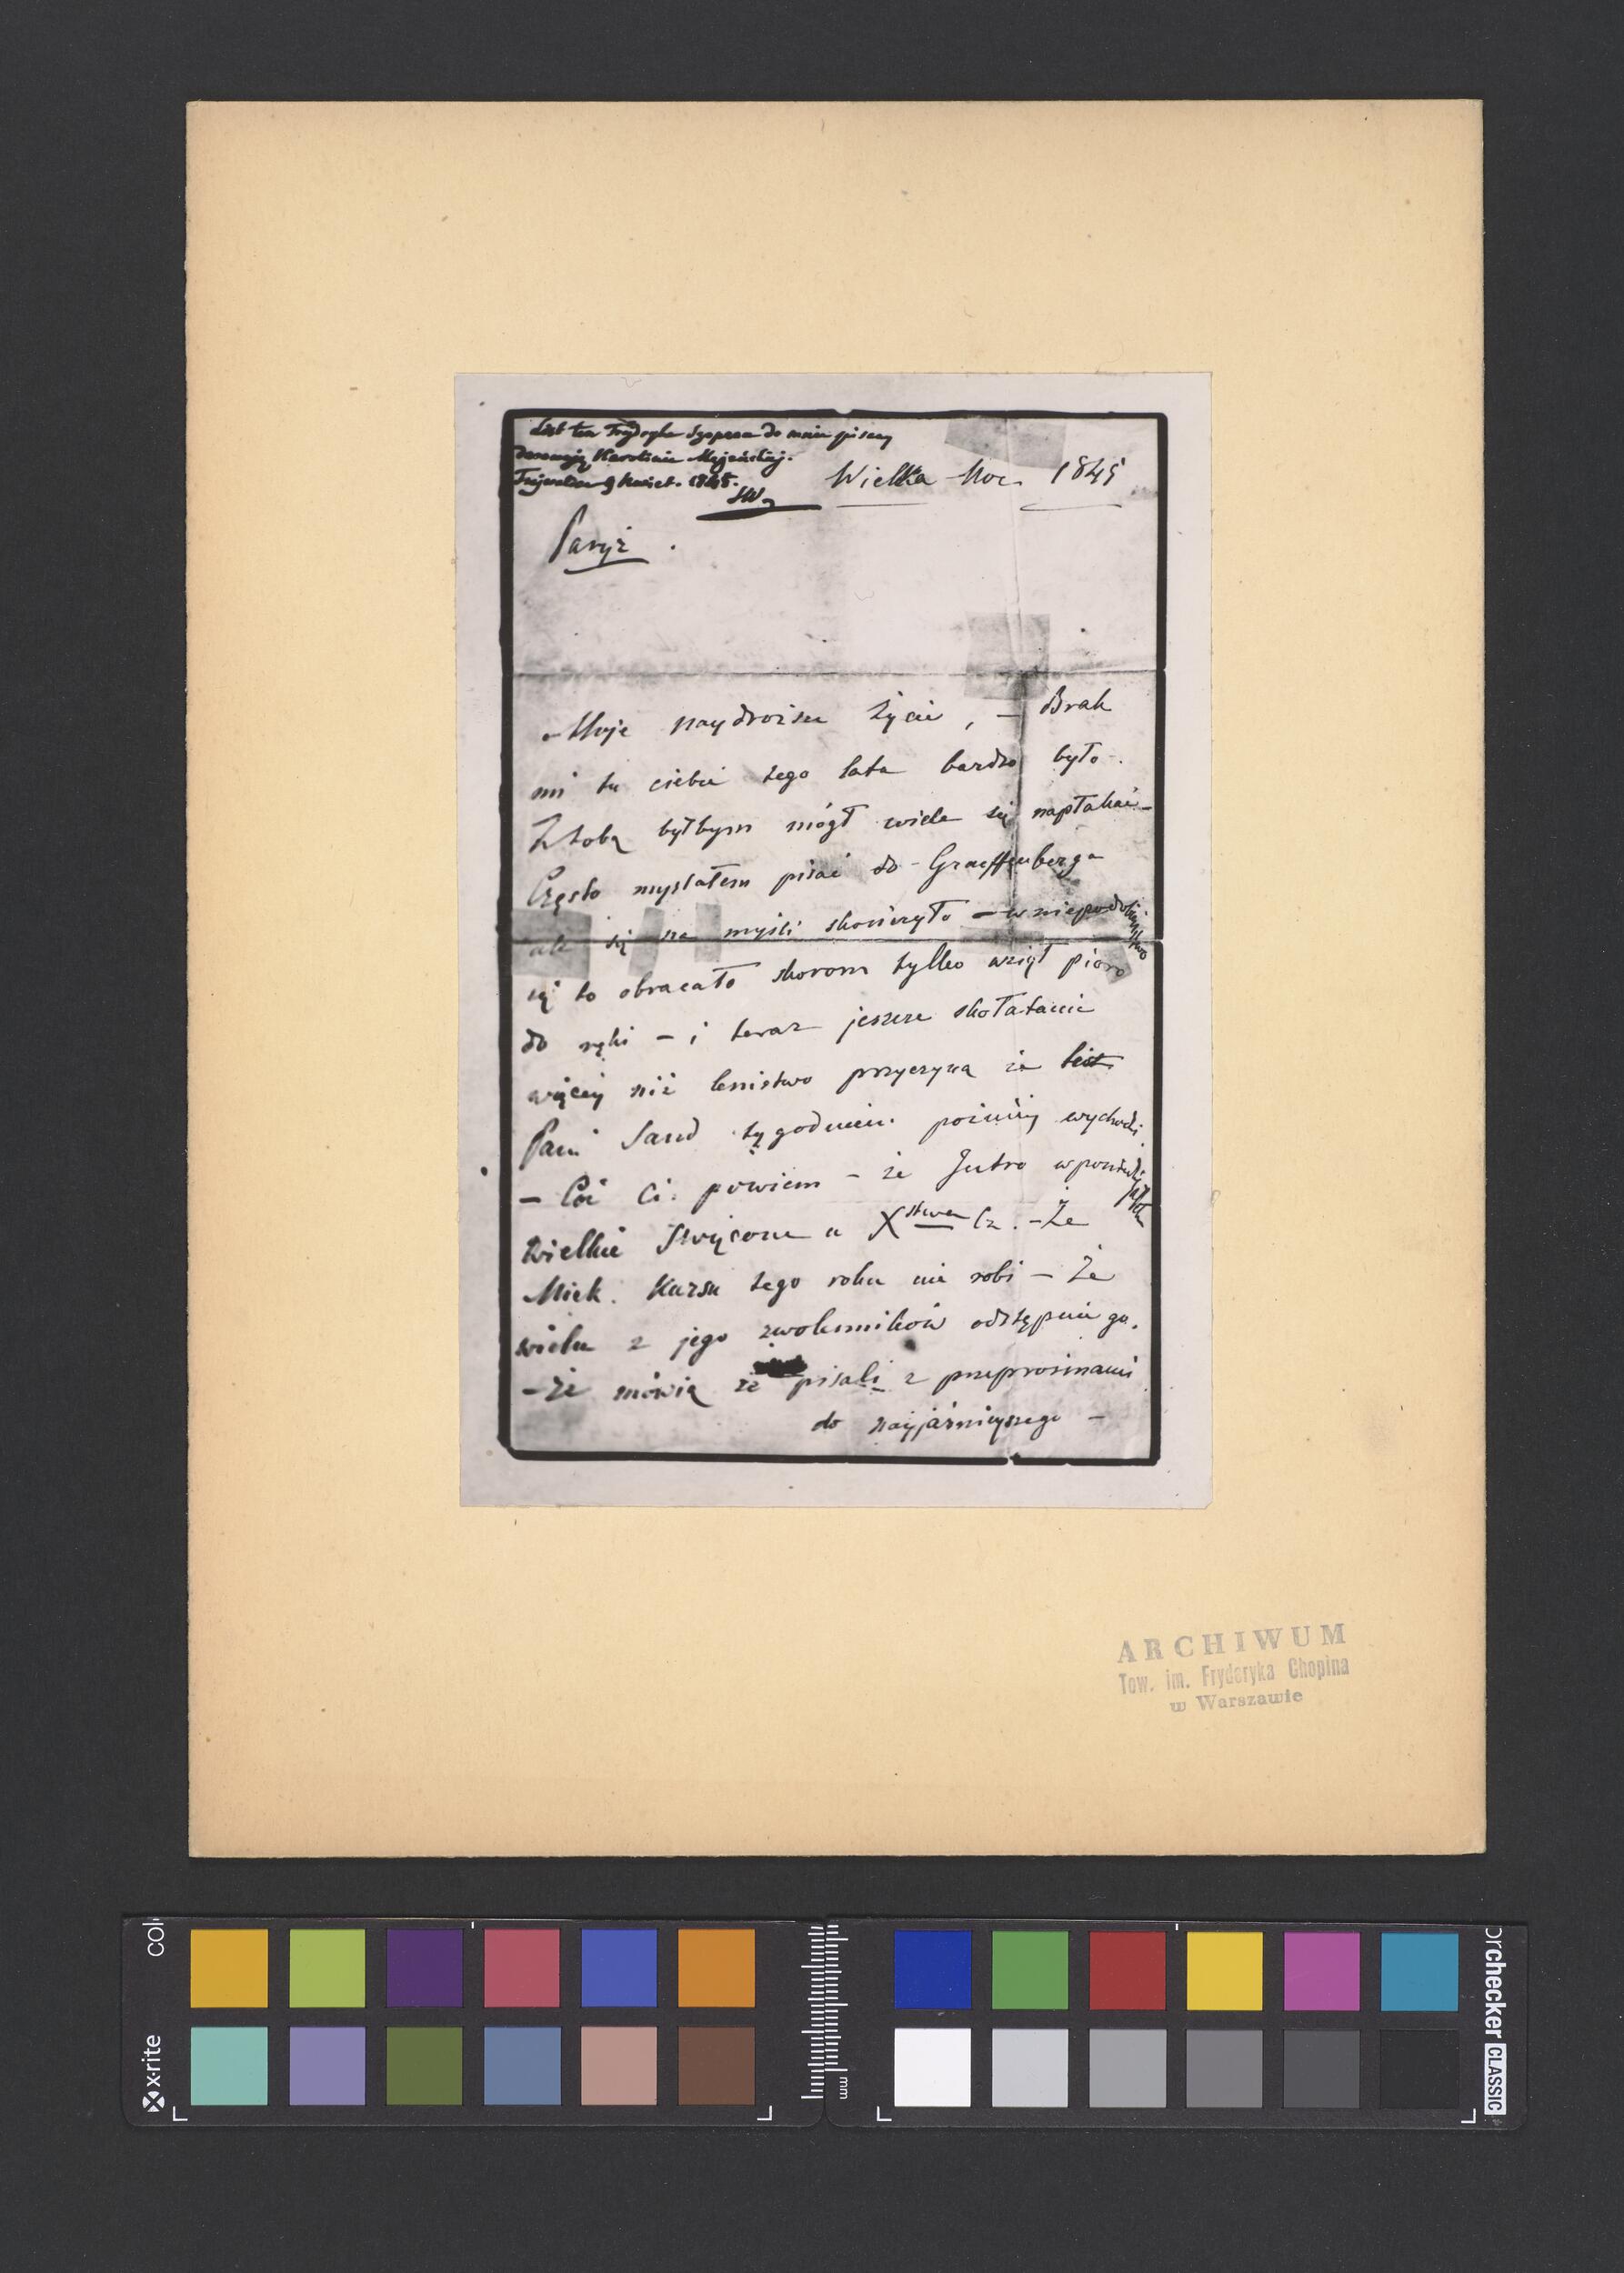 List ten Fryderyka Szopena do mnie pisany
darowuję Karolinie
9 kwiet. 1848.
SW
Wielka Noc 1845
Paryż.
Moje naydroższe życie, – Brak
mi tu ciebie tego lata bardzo było.
Z tobą byłbym mógł wiele się napłakać –
Często myslałem pisać do Graeffenberga
ale się na myśli skończyło – w niepodobieństwo
się to obracało skorom tylko wziął pioro
do ręki – i teraz jeszcze skołatanie
więcey niż lenistwo przyczyną że list
Pani Sand tygodniem poźniey wychodzi.
– Coż Ci powiem – że Jutro w poniedziałek
wielkie Swięcone u Xstwa Cz. – Że
Mick. Kursu tego roku nie robi – Że
wielu z jego zwolenników odstępuie go.
– że mówią że pisali z przeprosinami
do nayjaśnieyszego –
ARCHIWUM
Tow. im. Fryderyka Chopina
w Warszawie
x-rite
mm
colorchecker CLASSIC